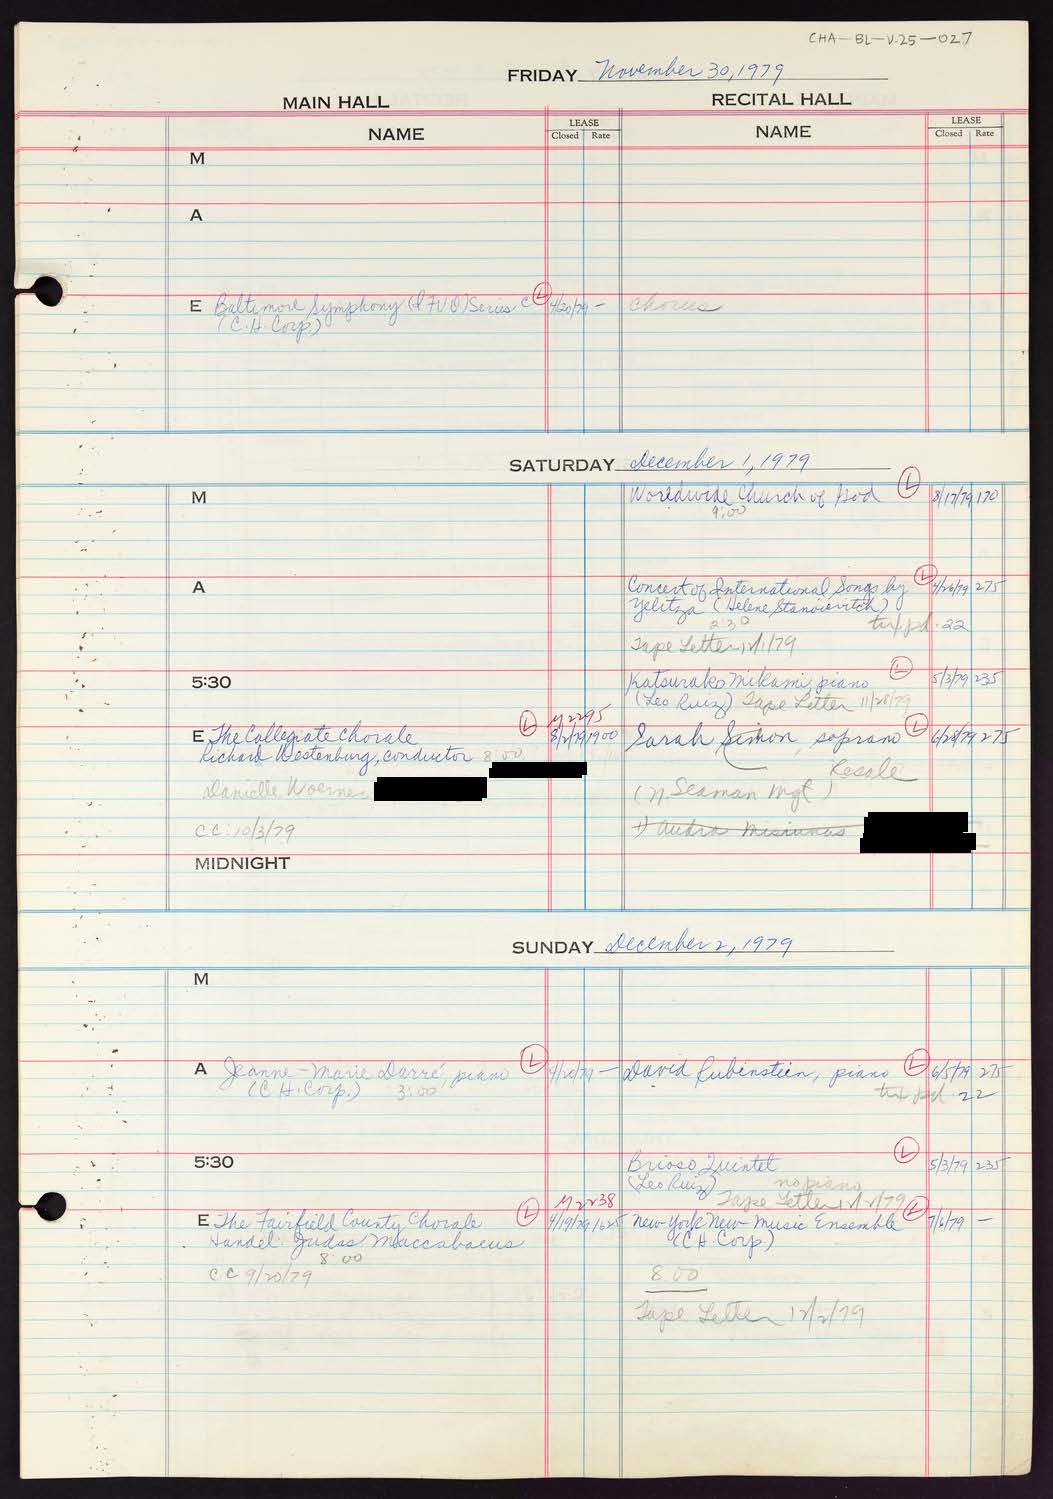 CHA-BL-V.25-027
FRIDAY November 30, 1979
MAIN HALL
RECITAL HALL
NAME
LEASE
Closed Rate
NAME
LEASE
Closed Rate
M
A
E Baltimore Symphony (IFVO) Series C L 4/20/79 - Chorus
(C.H. Corp.)
SATURDAY December 1, 1979
M
Worldwide Church of God L 8/17/79 170
9:00
A
Concert of International Songs by L 4/26/79 275
Yelitza (Helene Stanoievitch)
2:30 tax pd. 22
Tape Letter 12/1/79
5:30
Katsurako Mikami, piano L 5/3/79 235
(Leo Ruiz) Tape Letter 11/28/79
M 2295
E The Collegiate Chorale L 8/2/79 1900
Richard Westenburg, conductor 8:00
Danielle Woerner
CC: 10/3/79
Sarah Simon, soprano L 6/28/79 275
Resale
(N. Seaman Mgt)
1) Audra Misiunas
MIDNIGHT
SUNDAY December 2, 1979
M
A Jeanne-Marie Darré, piano L 4/10/79 -
(C.H. Corp.) 3:00
David Rubinstein, piano L 6/5/79 275
tax pd. 22
5:30
Brioso Quintet L 5/3/79 235
(Leo Ruiz) no piano
Tape Letter 12/2/79
M 2238
E The Fairfield County Chorale L 4/19/79 1625
Handel: Judas Maccabaeus
8:00
CC 9/20/79
New York New Music Ensemble L 7/6/79 -
(C.H. Corp.)
8:00
Tape Letter 12/2/79